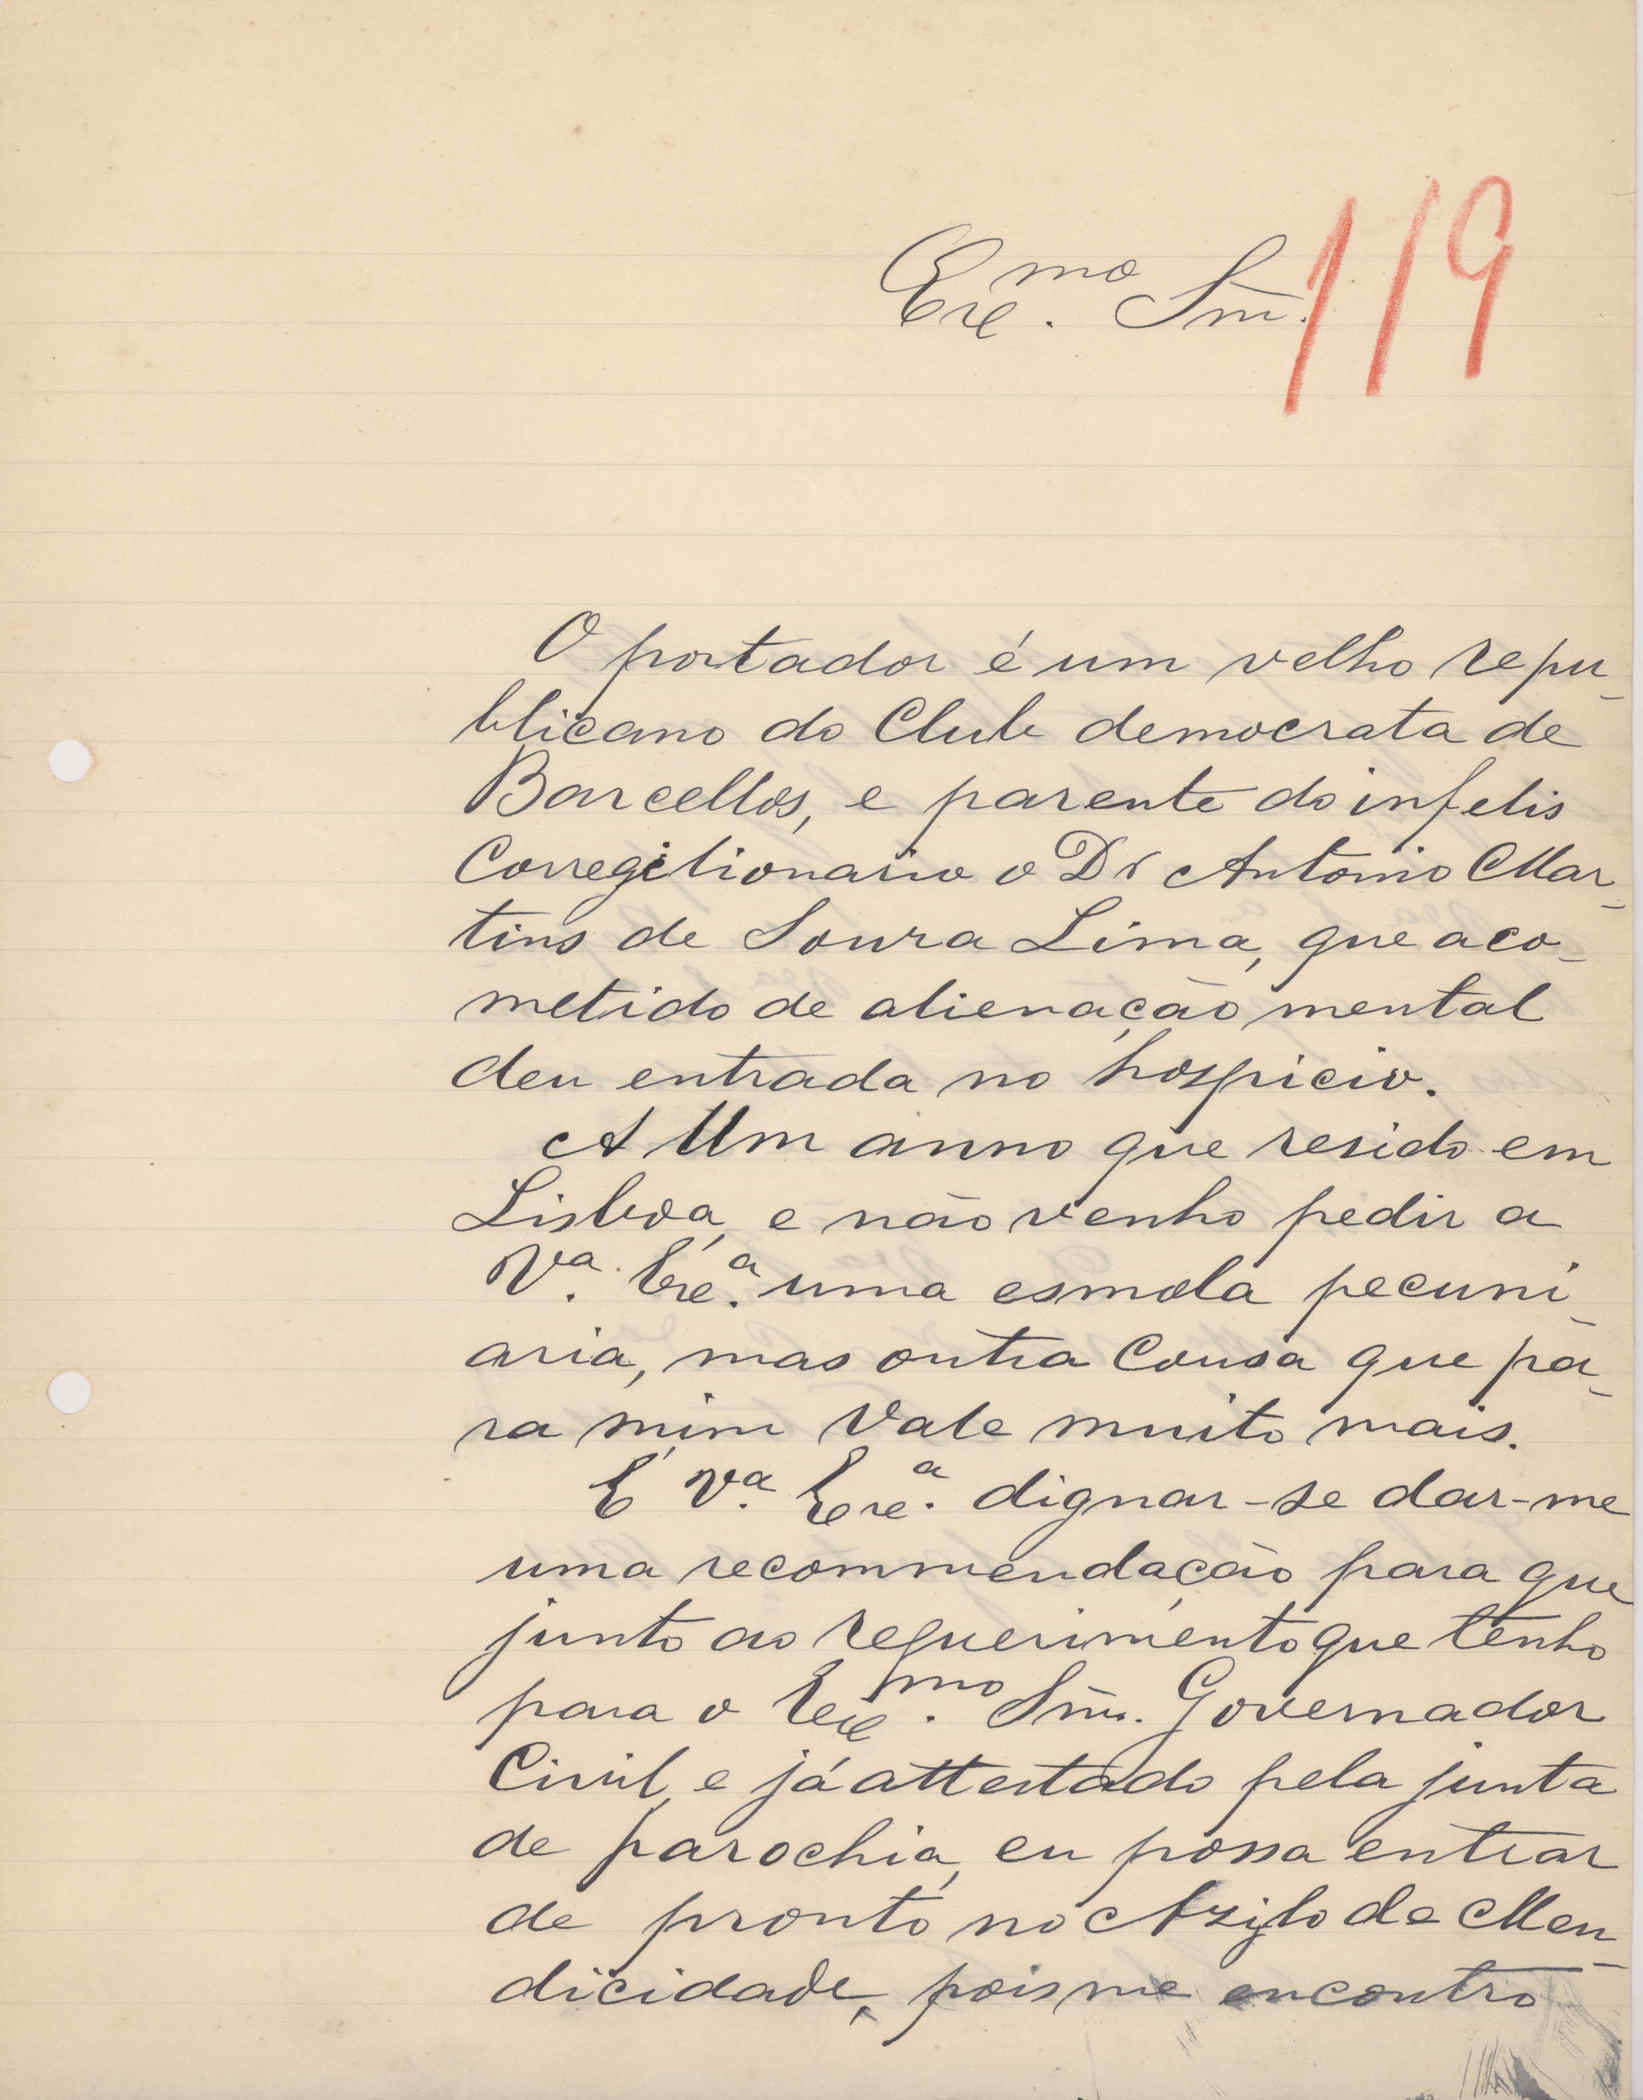 Exc.mo Snr.
119
O portador é um velho repu-
blicano do Club democrata de
Barcellos, e parente do infelis
Corregilionario o Dr Antonio Mar-
tins de Souza Lima, que aco-
metido de alienação mental
deu entrada no hospicio.
A Um anno que resido em
Lisboa, e não venho pedir a
V.a Exc.a uma esmola pecuni-
aria, mas outra Cousa que pa-
ra mim Vale muito mais.
É V.a Exc.a dignar-se dar-me
uma recommendação para que
junto ao requerimento que tenho
para o Exc.mo Snr. Governador
Civil, e já attestado pela junta
de parochia, eu possa entrar
de pronto no Azylo de Men-
dicidade, pois me encontro